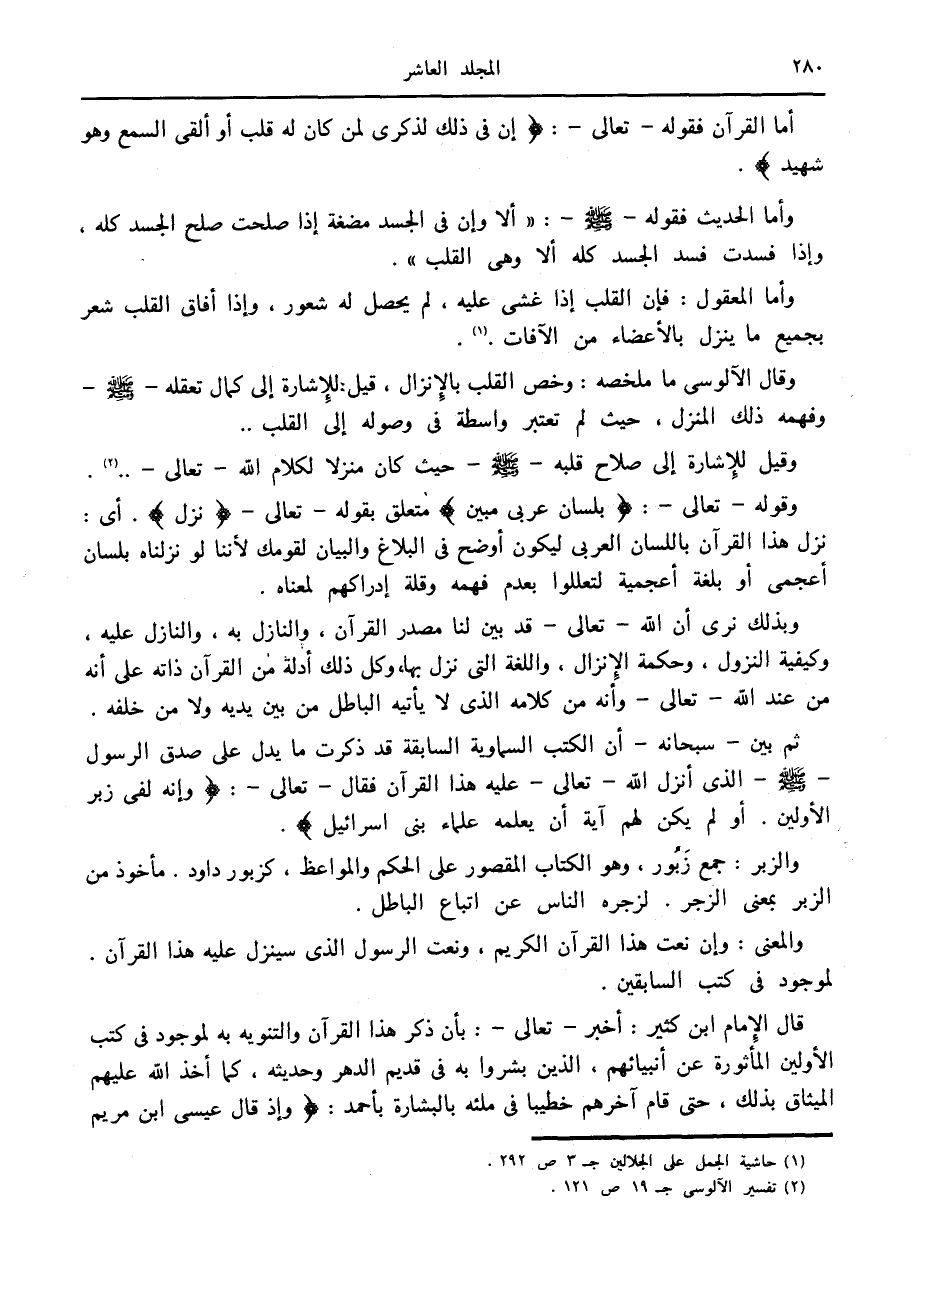 ٢٨٠ المجلد العاشر
أما القرآن فقوله - تعالى - : ﴿ إن فى ذلك لذكرى لمن كان له قلب أو ألقى السمع وهو
شهيد ﴾ .
وأما الحديث فقوله - ﷺ - : « ألا وإن فى الجسد مضغة إذا صلحت صلح الجسد كله ،
وإذا فسدت فسد الجسد كله ألا وهى القلب » .
وأما المعقول : فإن القلب إذا غشى عليه ، لم يحصل له شعور ، وإذا أفاق القلب شعر
بجميع ما ينزل بالأعضاء من الآفات .(١) .
وقال الآلوسى ما ملخصه : وخص القلب بالإنزال ، قيل:للإشارة إلى كمال تعقله - ﷺ -
وفهمه ذلك المنزل ، حيث لم تعتبر واسطة فى وصوله إلى القلب ..
وقيل للإشارة إلى صلاح قلبه - ﷺ - حيث كان منزلا لكلام الله - تعالى - ..(٢) .
وقوله - تعالى - : ﴿ بلسان عربى مبين ﴾ متعلق بقوله - تعالى - ﴿ نزل ﴾ . أى :
نزل هذا القرآن باللسان العربى ليكون أوضح فى البلاغ والبيان لقومك لأننا لو نزلناه بلسان
أعجمى أو بلغة أعجمية لتعللوا بعدم فهمه وقلة إدراكهم لمعناه .
وبذلك نرى أن الله - تعالى - قد بين لنا مصدر القرآن ، والنازل به ، والنازل عليه ،
وكيفية النزول ، وحكمة الإنزال ، واللغة التى نزل بها،وكل ذلك أدلة من القرآن ذاته على أنه
من عند الله - تعالى - وأنه من كلامه الذى لا يأتيه الباطل من بين يديه ولا من خلفه .
ثم بين - سبحانه - أن الكتب السماوية السابقة قد ذكرت ما يدل على صدق الرسول
- ﷺ - الذى أنزل الله - تعالى - عليه هذا القرآن فقال - تعالى - : ﴿ وإنه لفى زبر
الأولين . أو لم يكن لهم آية أن يعلمه علماء بنى اسرائيل ﴾ .
والزبر : جمع زَبُور ، وهو الكتاب المقصور على الحكم والمواعظ ، كزبور داود . مأخوذ من
الزبر بمعنى الزجر . لزجره الناس عن اتباع الباطل .
والمعنى : وإن نعت هذا القرآن الكريم ، ونعت الرسول الذى سينزل عليه هذا القرآن .
لموجود فى كتب السابقين .
قال الإمام ابن كثير : أخبر - تعالى - : بأن ذكر هذا القرآن والتنويه به لموجود فى كتب
الأولين المأثورة عن أنبيائهم ، الذين بشروا به فى قديم الدهر وحديثه ، كما أخذ الله عليهم
الميثاق بذلك ، حتى قام آخرهم خطيبا فى ملئه بالبشارة بأحمد : ﴿ وإذ قال عيسى ابن مريم
(١) حاشية الجمل على الجلالين جـ ٣ ص ٢٩٢ .
(٢) تفسير الآلوسى جـ ١٩ ص ١٢١ .